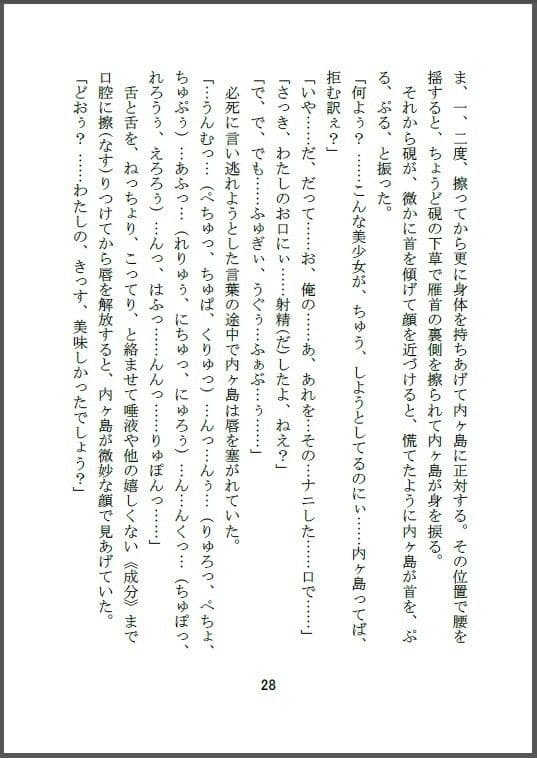 ま、一、二度、擦ってから更に身体を持ちあげて内ヶ島に正対する。その位置で腰を
揺すると、ちょうど硯の下草で雁首の裏側を擦られて内ヶ島が身を捩る。
それから硯が、微かに首を傾げて顔を近づけると、慌てたように内ヶ島が首を、ぷ
る、ぷる、と振った。
「何よぅ？……こんな美少女が、ちゅう、しようとしてるのにぃ……内ヶ島ってば、
拒む訳ぇ？」
「いや……だ、だって……お、俺の……あ、あれを…その…ナニした……口で……」
「さっき、わたしのお口にぃ……射精(だ)したよ、ねえ？」
「で、で、でも……ふゅぎぃ、うぐぅ…ふぁぶ…ぅ……」
必死に言い逃れようとした言葉の途中で内ヶ島は唇を塞がれていた。
「…うんむっ…（ぺちゅっ、ちゅぱ、くりゅっ）…んっ…んぅ…（りゅろっ、ぺちょ、
ちゅぷぅ）…あふっ…（れりゅぅ、にちゅっ、にゅろぅ）…ん…んくっ…（ちゅぽっ、
れろうぅ、えろろぅ）…んっ、はふっ……んんっ……りゅぽんっ……」
舌と舌を、ねっちょり、こってり、と絡ませて唾液や他の嬉しくない《成分》まで
口腔に擦(なす)りつけてから唇を解放すると、内ヶ島が微妙な顔で見あげていた。
「どおぅ？……わたしの、きっす、美味しかったでしょう？」
28